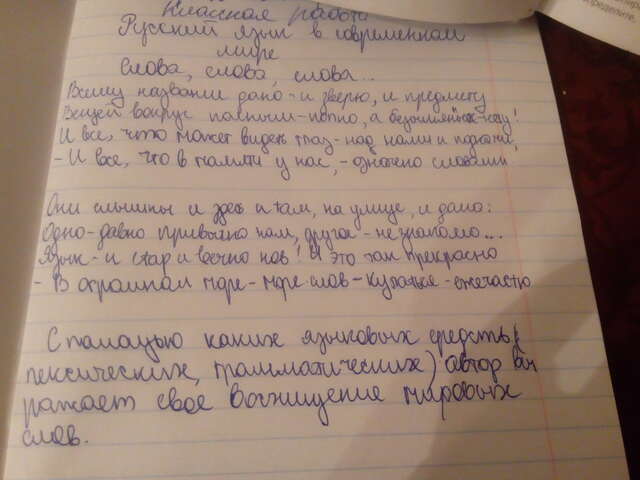 Классная работа
Русский язык в современном
мире
Слова, слова, слова...
Всему название дано - и зверю, и предмету
Вещей вокруг полным-полно, а безымянных - нету!
И все, что может видеть глаз - над нами и под нами,
- И все, что в памяти у нас, - означено словами,
Они слышны и здесь и там, на улице, и дома:
Одно - давно привычно нам, другое - не знакомо...
Язык - и стар и вечно нов! И это так прекрасно
- В огромном море - море слов - купаться - ежечасно
С помощью каких языковых средств (
лексических, грамматических) автор вы
ражает свое восхищение миром
слов.